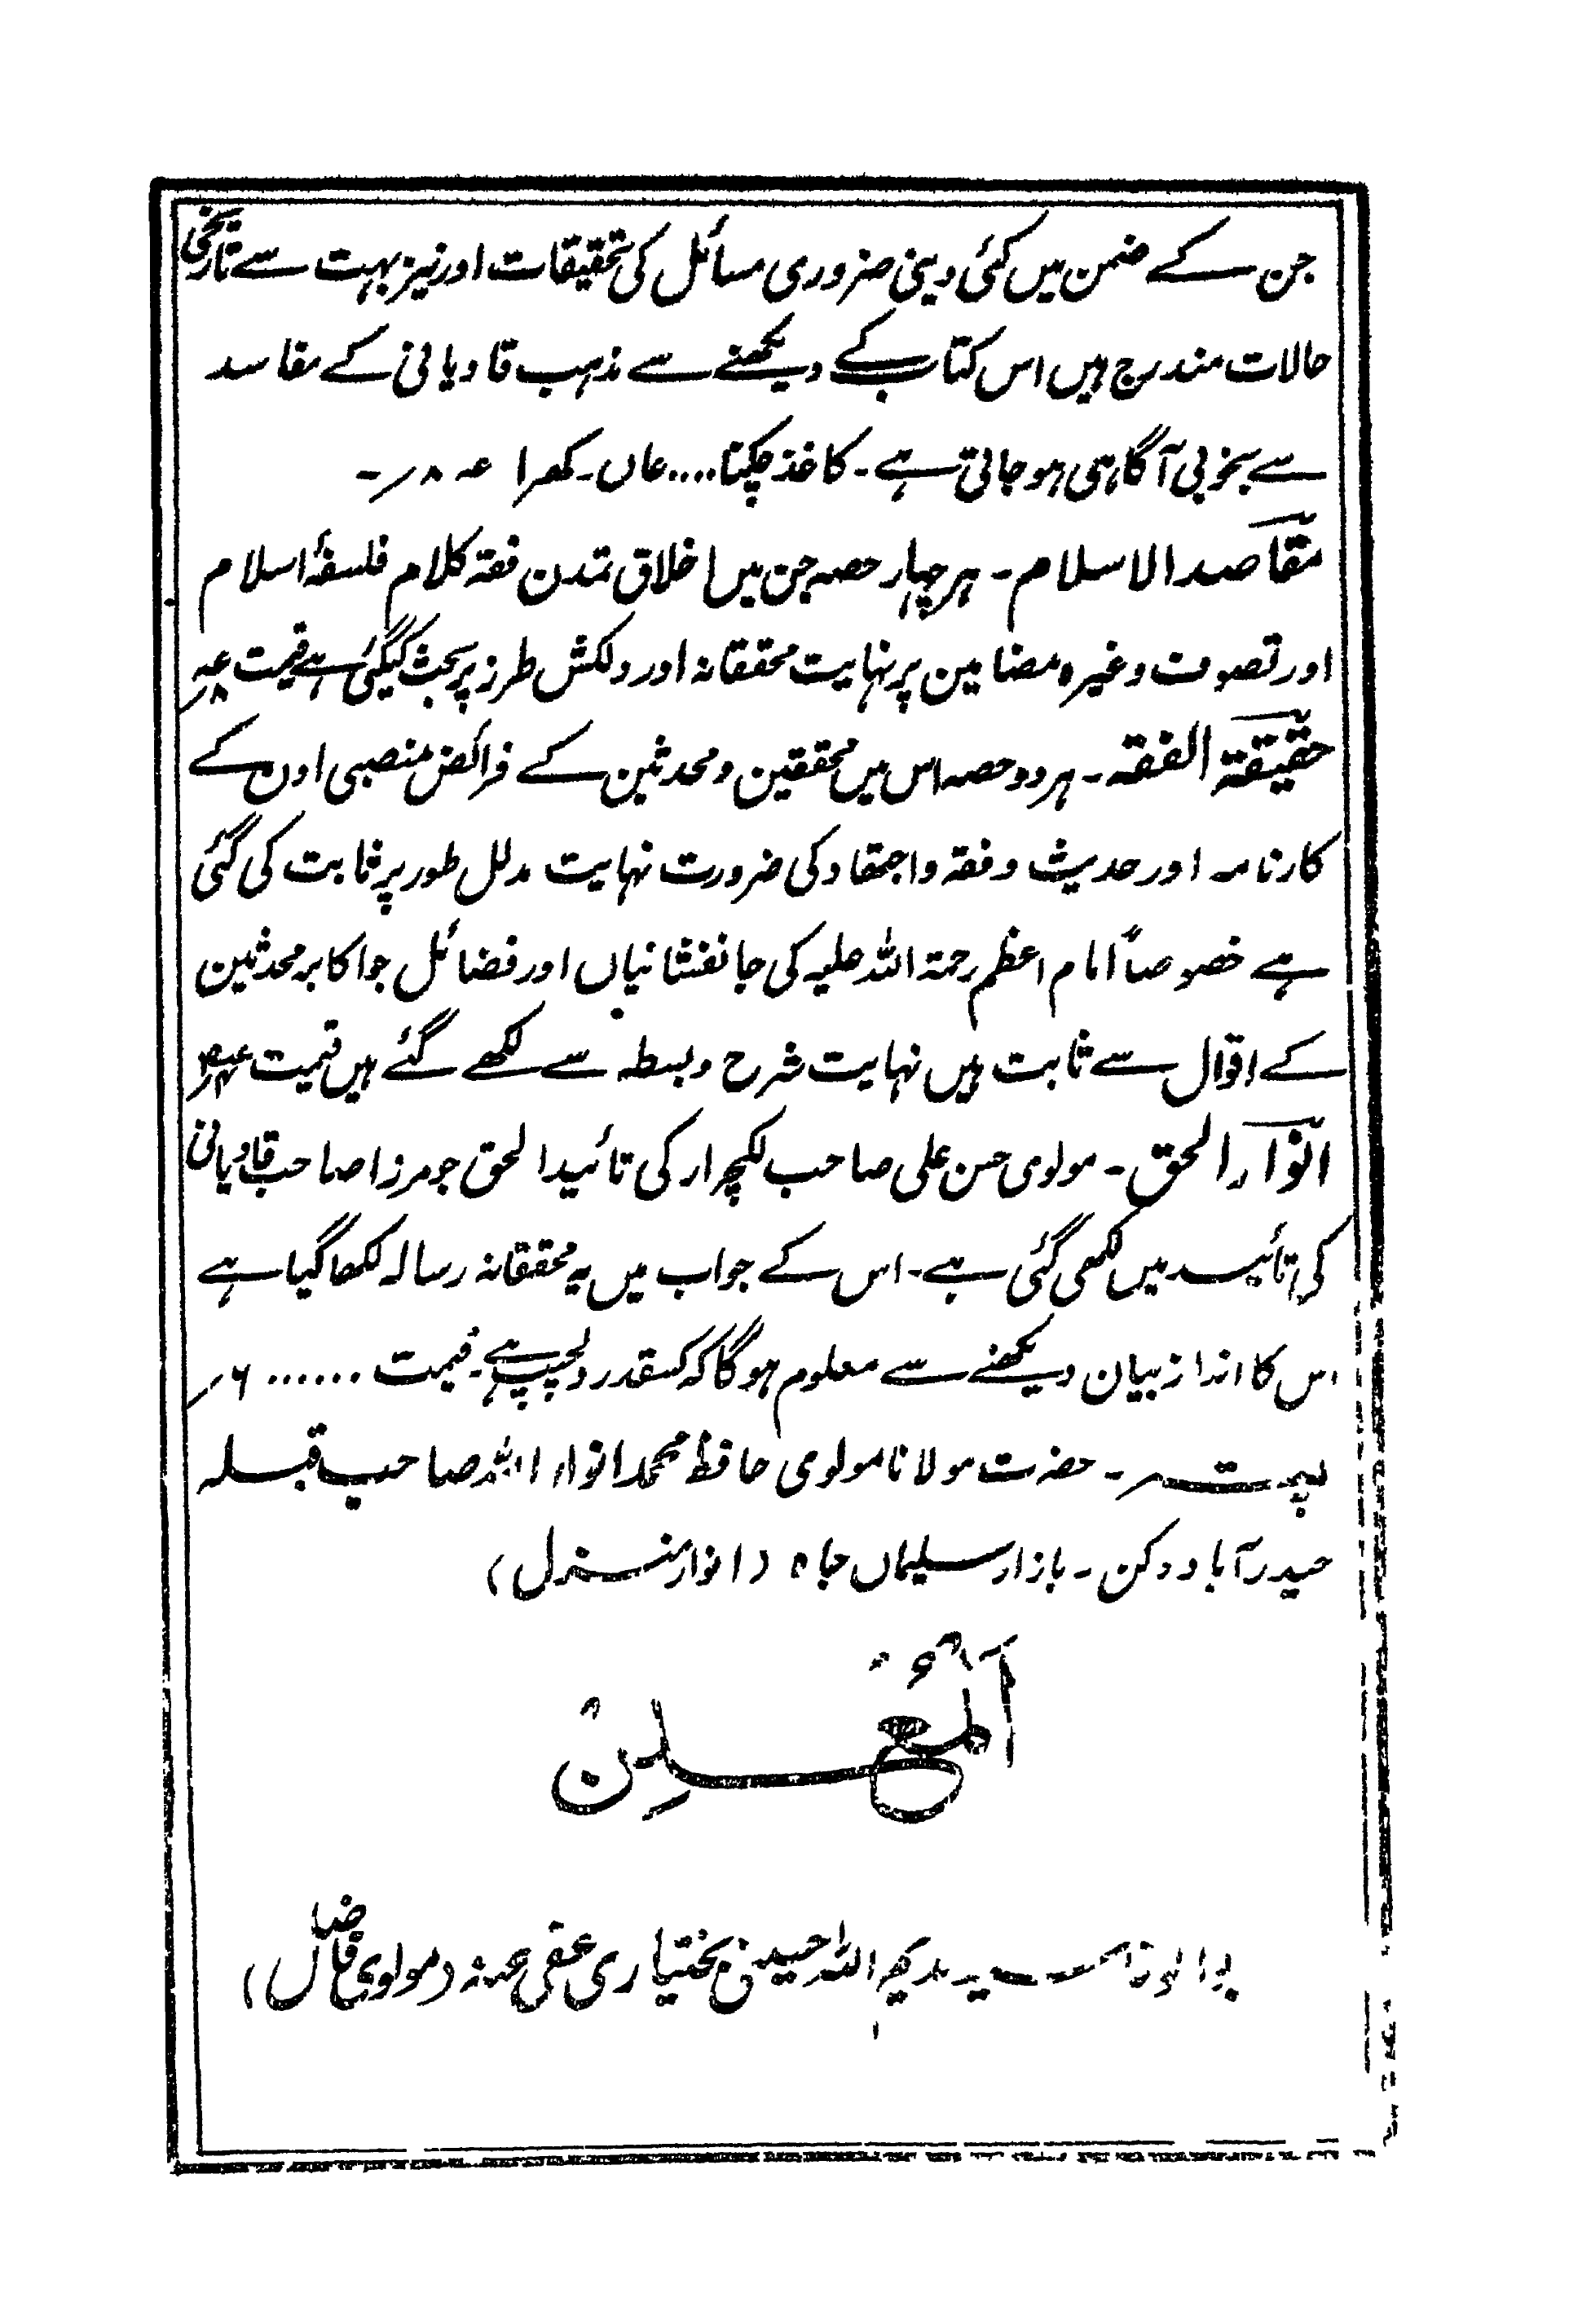 جن کے ضمن میں کئی دینی ضروری مسائل کی تحقیقات اور نیز بہت سے تاریخی
حالات مندرج ہیں اس کتاب کے دیکھنے سے مذہب قادیانی کے مفاسد
سے بخوبی آگاہی ہو جاتی ہے۔ کاغذ چکنا.... عاں۔ کھرا عہ ۸؍۔
مقاصد الاسلام۔ ہر چہار حصہ جن میں اخلاق تمدن فقہ کلام فلسفۂ اسلام
اور تصوف وغیرہ مضامین پر نہایت محققانہ اور دلکش طرز پر بحث کیگئی ہے قیمت
حقیقۃ الفقہ۔ ہر دو حصہ اس میں محققین و محدثین کے فرائض منصبی اون کے
کارنامہ اور حدیث و فقہ و اجتہاد کی ضرورت نہایت مدلل طور پر ثابت کی گئی
ہے خصوصاً امام اعظم رحمۃ اللہ علیہ کی جانفشانیاں اور فضائل جو اکابر محدثین
کے اقوال سے ثابت ہیں نہایت شرح و بسطہ سے لکھے گئے ہیں قیمت
انوار الحق۔ مولوی حسن علی صاحب لکچرار کی تائید الحق جو مرزا صاحب قادیانی
کی تائید میں لکھی گئی ہے۔ اس کے جواب میں یہ محققانہ رسالہ لکھا گیا ہے
اس کا انداز بیان دیکھنے سے معلوم ہوگا کہ کسقدر دلچسپ ہے۔ قیمت ...... ۶؍
حضرت مولانا مولوی حافظ محمد انوار اللہ صاحب قبلہ
حیدرآباد دکن۔ بازار سلیماں جاہ (انوار منزل)
اَلْمُعْلِنْ
اللہ حسینی بختیاری عفی عنہ (مولوی فاضل)